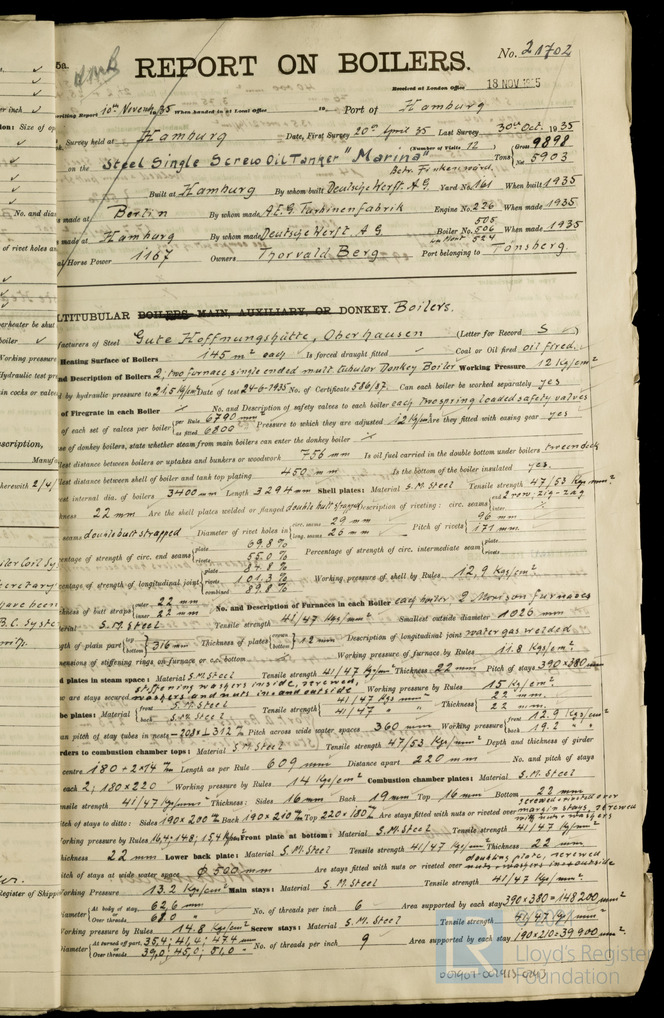 5a.
REPORT ON BOILERS.
No. 21702
Received at London Office 18 NOV 1935
writing Report 10th Novemb. 1935 When handed in at Local Office 19 Port of Hamburg
Survey held at Hamburg Date, First Survey 20th April 35 Last Survey 30th Oct. 1935
on the Steel Single Screw Oil Tanker "Marina" (Number of Visits 12) Tons Gross 9898 Net 5903
Built at Hamburg By whom built Deutsche Werft. A.G. Yard No. 161 When built 1935
made at Berlin By whom made A.E.G. Turbinenfabrik Engine No. 226 When made 1935
made at Hamburg By whom made Deutsche Werft A.G. Boiler No. 505 506 524 When made 1935
al Horse Power 1167 Owners Thorvald Berg Port belonging to Tönsberg
LTITUBULAR BOILERS MAIN, AUXILIARY, OR DONKEY. Boilers.
facturers of Steel Gute Hoffnungshütte, Oberhausen (Letter for Record S)
Heating Surface of Boilers 145 m² each Is forced draught fitted Coal or Oil fired oil fired.
and Description of Boilers 2, two furnace single ended mult. tubular Donkey Boiler Working Pressure 12 Kg/cm²
by hydraulic pressure to 21,5 Kg/cm² Date of test 24-6-1935 No. of Certificate 586/87. Can each boiler be worked separately yes
of Firegrate in each Boiler No. and Description of safety valves to each boiler each two spring loaded safety valves
of each set of valves per boiler per Rule 6790 mm² as fitted 6800 Pressure to which they are adjusted 12 Kg/cm² Are they fitted with easing gear yes
se of donkey boilers, state whether steam from main boilers can enter the donkey boiler
llest distance between boilers or uptakes and bunkers or woodwork 756 mm Is oil fuel carried in the double bottom under boilers tweendeck
lest distance between shell of boiler and tank top plating 450 mm Is the bottom of the boiler insulated yes.
est internal dia. of boilers 3400 mm Length 3294 mm Shell plates: Material S.M. Steel Tensile strength 47/53 Kg/mm²
kness 22 mm Are the shell plates welded or flanged double butt strapped Description of riveting: circ. seams end 2 row, zig-zag inter
seams double butt strapped Diameter of rivet holes in circ. seams 29 mm long. seams 26 mm Pitch of rivets 96 mm 171 mm.
centage of strength of circ. end seams plate 69.8 % rivets 55.0 % Percentage of strength of circ. intermediate seam plate rivets
centage of strength of longitudinal joint plate 84.8 % rivets 101.3 % combined 89.8 % Working pressure of shell by Rules 12,9 Kgs/cm².
ckness of butt straps outer 22 mm inner 22 mm No. and Description of Furnaces in each Boiler each boiler 2 Morison furnaces
erial S.M. Steel Tensile strength 41/47 Kg/mm² Smallest outside diameter 1026 mm
gth of plain part top bottom 316 mm Thickness of plates crown bottom 12 mm Description of longitudinal joint water gas welded
mensions of stiffening rings on furnace or c.c. bottom Working pressure of furnace by Rules 11.8 Kgs/cm².
d plates in steam space: Material S.M. Steel Tensile strength 41/47 Kgs/mm² Thickness 22 mm Pitch of stays 390 x 380 mm
w are stays secured stiffening washers inside, screwed, washers and nuts in and outside Working pressure by Rules 15 Kgs/cm².
be plates: Material front S.M. Steel back S.M. Steel Tensile strength 41/47 Kgs/mm² 41/47 " " Thickness 22 mm. 22 mm.
an pitch of stay tubes in nests 203.1 ± 312 % Pitch across wide water spaces 360 mm Working pressure front 12.9 Kgs/cm² back 19.2 " "
rders to combustion chamber tops: Material S.M. Steel Tensile strength 47/53 Kg/mm² Depth and thickness of girder
centre 180 = 2 x 14 % Length as per Rule 609 mm Distance apart 220 mm No. and pitch of stays
each 2; 180 x 220 Working pressure by Rules 14 Kgs/cm² Combustion chamber plates: Material S.M. Steel
ensile strength 41/47 Kgs/mm² Thickness: Sides 16 mm Back 19 mm Top 16 mm Bottom 22 mm
Pitch of stays to ditto: Sides 190 x 200 % Back 190 x 210 % Top 220 x 180 % Are stays fitted with nuts or riveted over screwed & riveted over margin stays, screwed with nuts & washers
Working pressure by Rules 16,4; 14,8; 15,4 Kgs/cm² Front plate at bottom: Material S.M. Steel Tensile strength 41/47 Kgs/mm²
hickness 22 mm Lower back plate: Material S.M. Steel Tensile strength 41/47 Kgs/mm² Thickness 22 mm
itch of stays at wide water space φ 500 mm Are stays fitted with nuts or riveted over doubling plate, screwed nuts & washers in & outside
Working Pressure 13.2 Kgs/cm² Main stays: Material S.M. Steel Tensile strength 41/47 Kgs/mm²
Diameter At body of stay 62,6 mm Over threads 68.0 " No. of threads per inch 6 Area supported by each stay 390 x 380 = 148200 mm²
Working pressure by Rules 14.8 Kgs/cm² Screw stays: Material S.M. Steel Tensile strength 41/47 Kgs/mm²
Diameter At turned off part 35,4; 41,4; 47,4 mm Over threads 39,0; 45,0; 51,0 " No. of threads per inch 9 Area supported by each stay 190 x 210 = 39900 mm²
LR Lloyd's Register Foundation